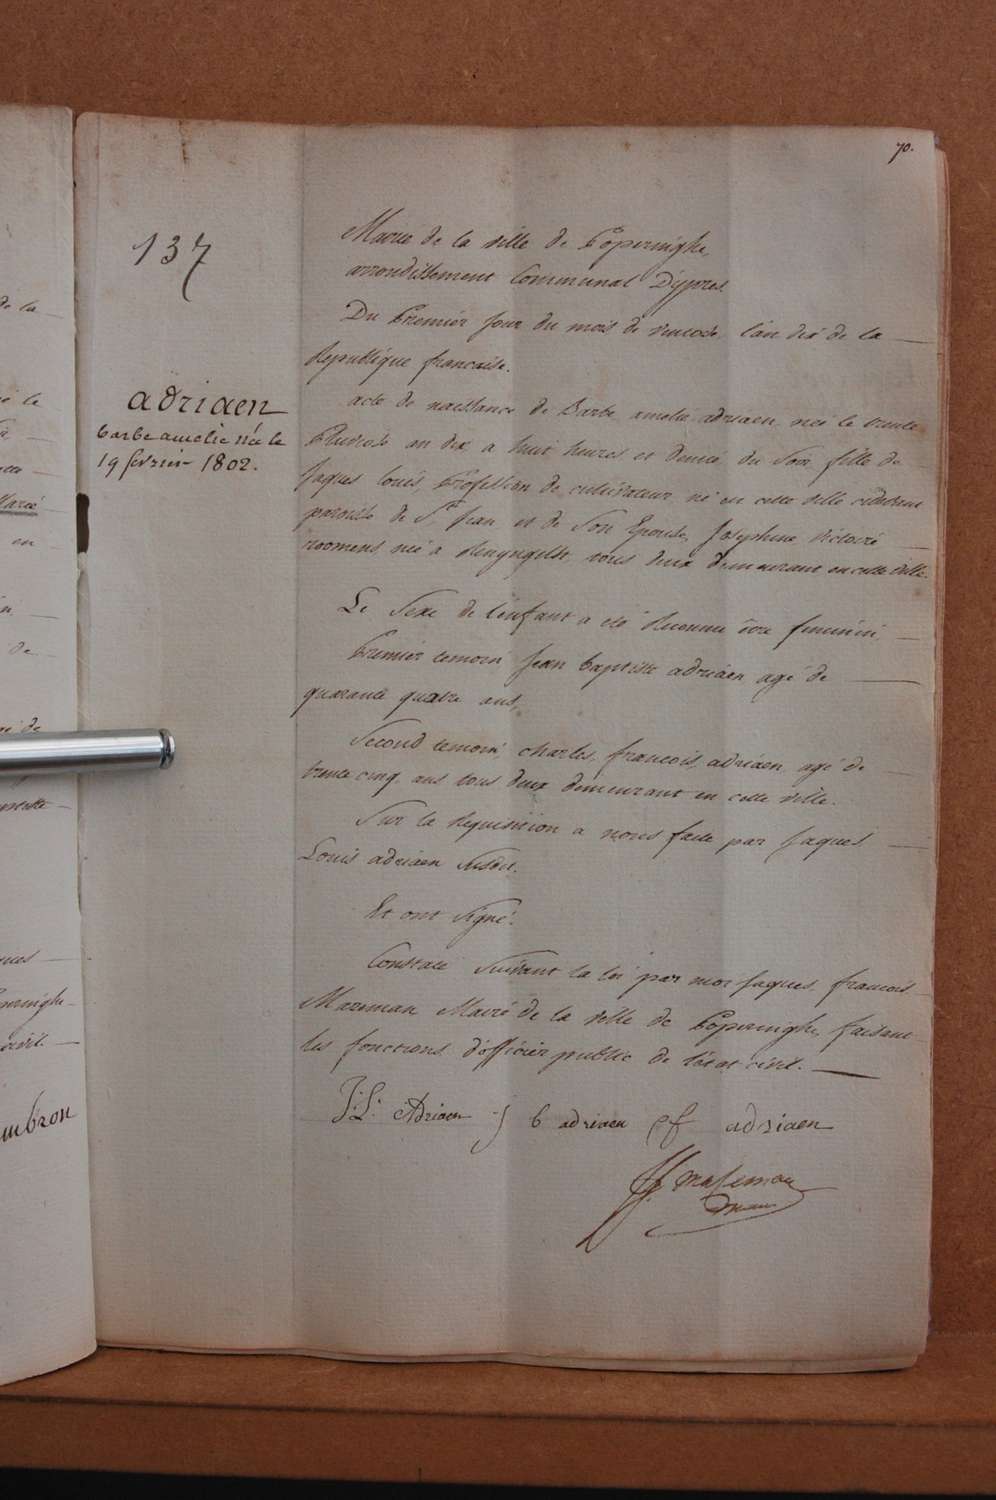 70.
137
Mairie de la ville de Poperinghe,
arrondissement Communal D'ypres
Du Premiér jour du mois de ventose, l'an dix de la
Republique francaise.
adriaen
barbe amelie née le
19 fevrier 1802.
acte de naissance de Barbe amelie adriaen née le trente
Pluviose an dix a huit heures et demie du Soir, fille de
Jaques Louis, Profession de cultivateur né en cette ville cidevant
paroisse de St Jean et de Son Epouse, Josephine Victoire
roomens née a Renynghelst, tous deux demeurant en cette ville.
Le Sexe de l'enfant a eté Reconnu être feminin,
Premier temoin Jean baptiste adriaen agé de
quarante quatre ans,
Second temoin, charles, francois, adriaen, agé de
trente cinq ans tous deux demeurant en cette ville.
Sur la Requisition a nous faite par Jaques
Louis adriaen susdit.
Et ont Signé.
Constaté Suivant la loi par moi Jaques francois
Mazeman Maire de la ville de Poperinghe, faisant
les fonctions d'officier public de l'état civil.
J: L: Adriaen J b adriaen c f adriaen
JF Mazeman
de la
Marie
en
de
gé de
ques
Poperinghe
civil
umbron